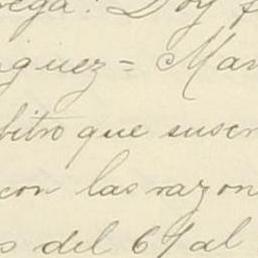 vega. Doy f
iguez = Mar
bitro que suscr
con las razon
s del 69 al